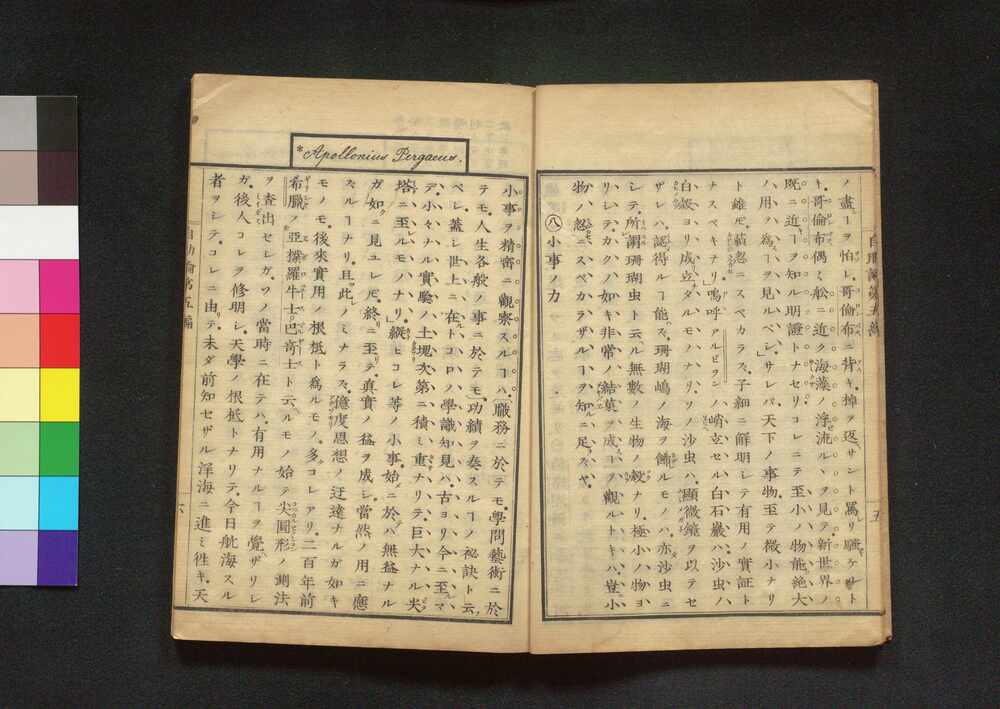 ノ盡ーヲ怕レ哥倫布ニ背キ掉ヲ返サント罵リ騒ケルト
キ哥倫布偶ミ舩ニ近ク海藻ノ浮流ルヽヲ見テ新世界ノ
既ニ近キーヲ知ル明證トナセリコレニテ至小ノ物能絶大
ノ用ヲ爲スーヲ見ルベシ」サレバ天下ノ事物至テ微小ナリ
ト雖𪜈藐忽ニスベカラス子細ニ觧明シテ有用ノ實証ト
ナスベキナリ」嗚呼アルビヲンノ峭立セル白石巖ハ沙虫ノ
白殻ヨリ成立タルモノナリソノ沙虫ハ顯微鏡ヲ以テセ
ザレハ認得ルー能ズ珊瑚嶋ノ海ヲ飾ルモノハ亦沙虫ニ
シテ所謂珊瑚虫ト云ル無數ノ生物ノ殻ナリ極小ノ物ヨ
リシテカクノ如キ非常ノ結菓ヲ成スヲ觀ルトキハ豈小
物ノ忽ニスベカラザルーヲ知ニ足ズヤ
㊇小事ノ力
五
*Apollonius Pergaeus.
小事ヲ精審ニ觀察スルーハ職務ニ於テモ學問藝術ニ於
テモ人生各般ノ事ニ於テモ功績ヲ奏スルーノ祕訣ト云
ベシ蓋シ世上ニ在トコロノ學識知見ハ古ヨリ今ニ至ルマ
デ小々ナル實騐ノ土塊次第ニ積ミ重ナリテ巨大ナル尖
塔ニ至ルモノナリ」縱ヒコレ等ノ小事始ニ於ハ無益ナル
ガ如クニ見ユレ𪜈終ニ至テ真實ノ益ヲ成シ當然ノ用ニ應
スルーナリ且此ノミナラス億度思想ノ迂遠ナルガ如キ
モノモ後來實用ノ根柢ト爲ルモノ多コレアリ二百年前
希臘ノ亞探羅牛士巴竒士ト云ルモノ始テ尖圓形ノ測法
ヲ査出セシガソノ當時ニ在テハ有用ナルーヲ覺ザリシ
ガ後人コレヲ修明シ天學ノ根柢トナリテ今日航海スル
者ヲシテコレニ由テ未ダ前知セザル洋海ニ進ミ徃キ天
自助論第五編
六